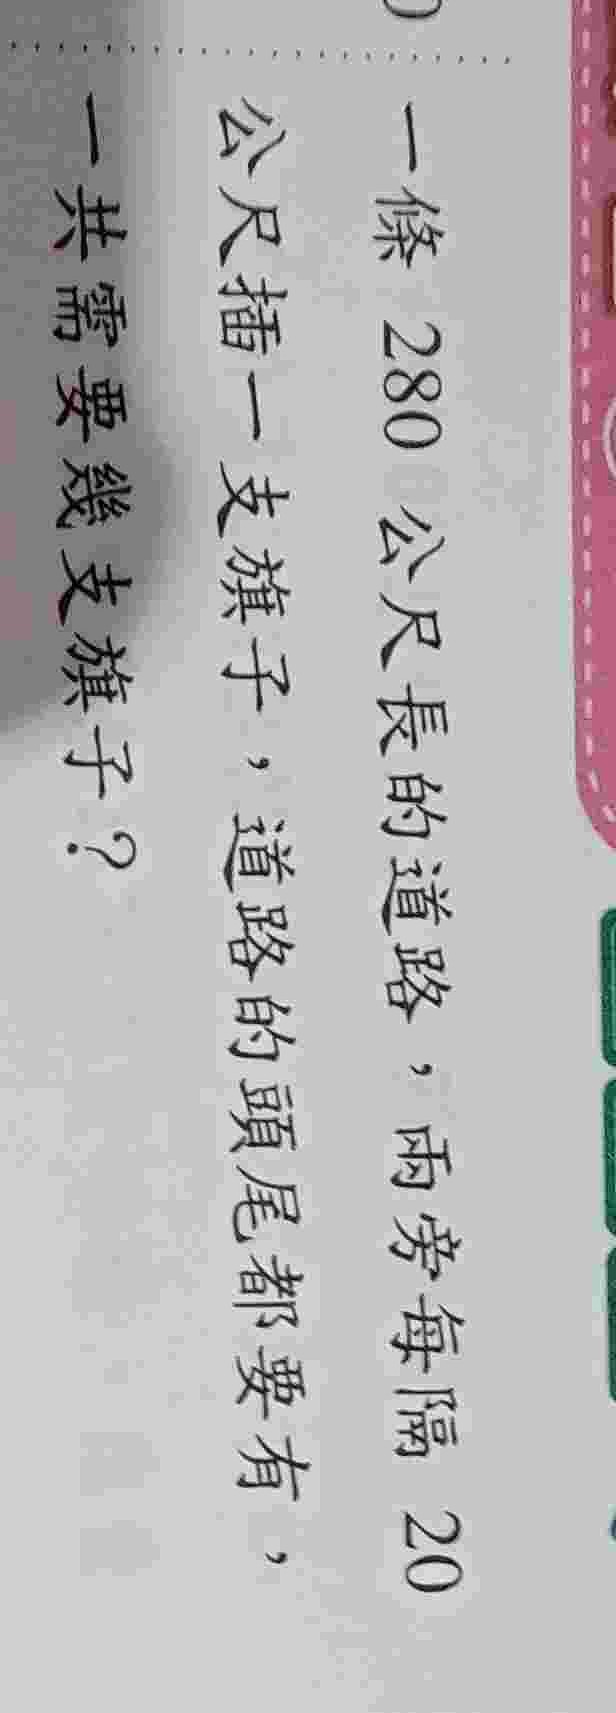 一條 280 公尺長的道路，兩旁每隔 20
公尺插一支旗子，道路的頭尾都要有，
一共需要幾支旗子？